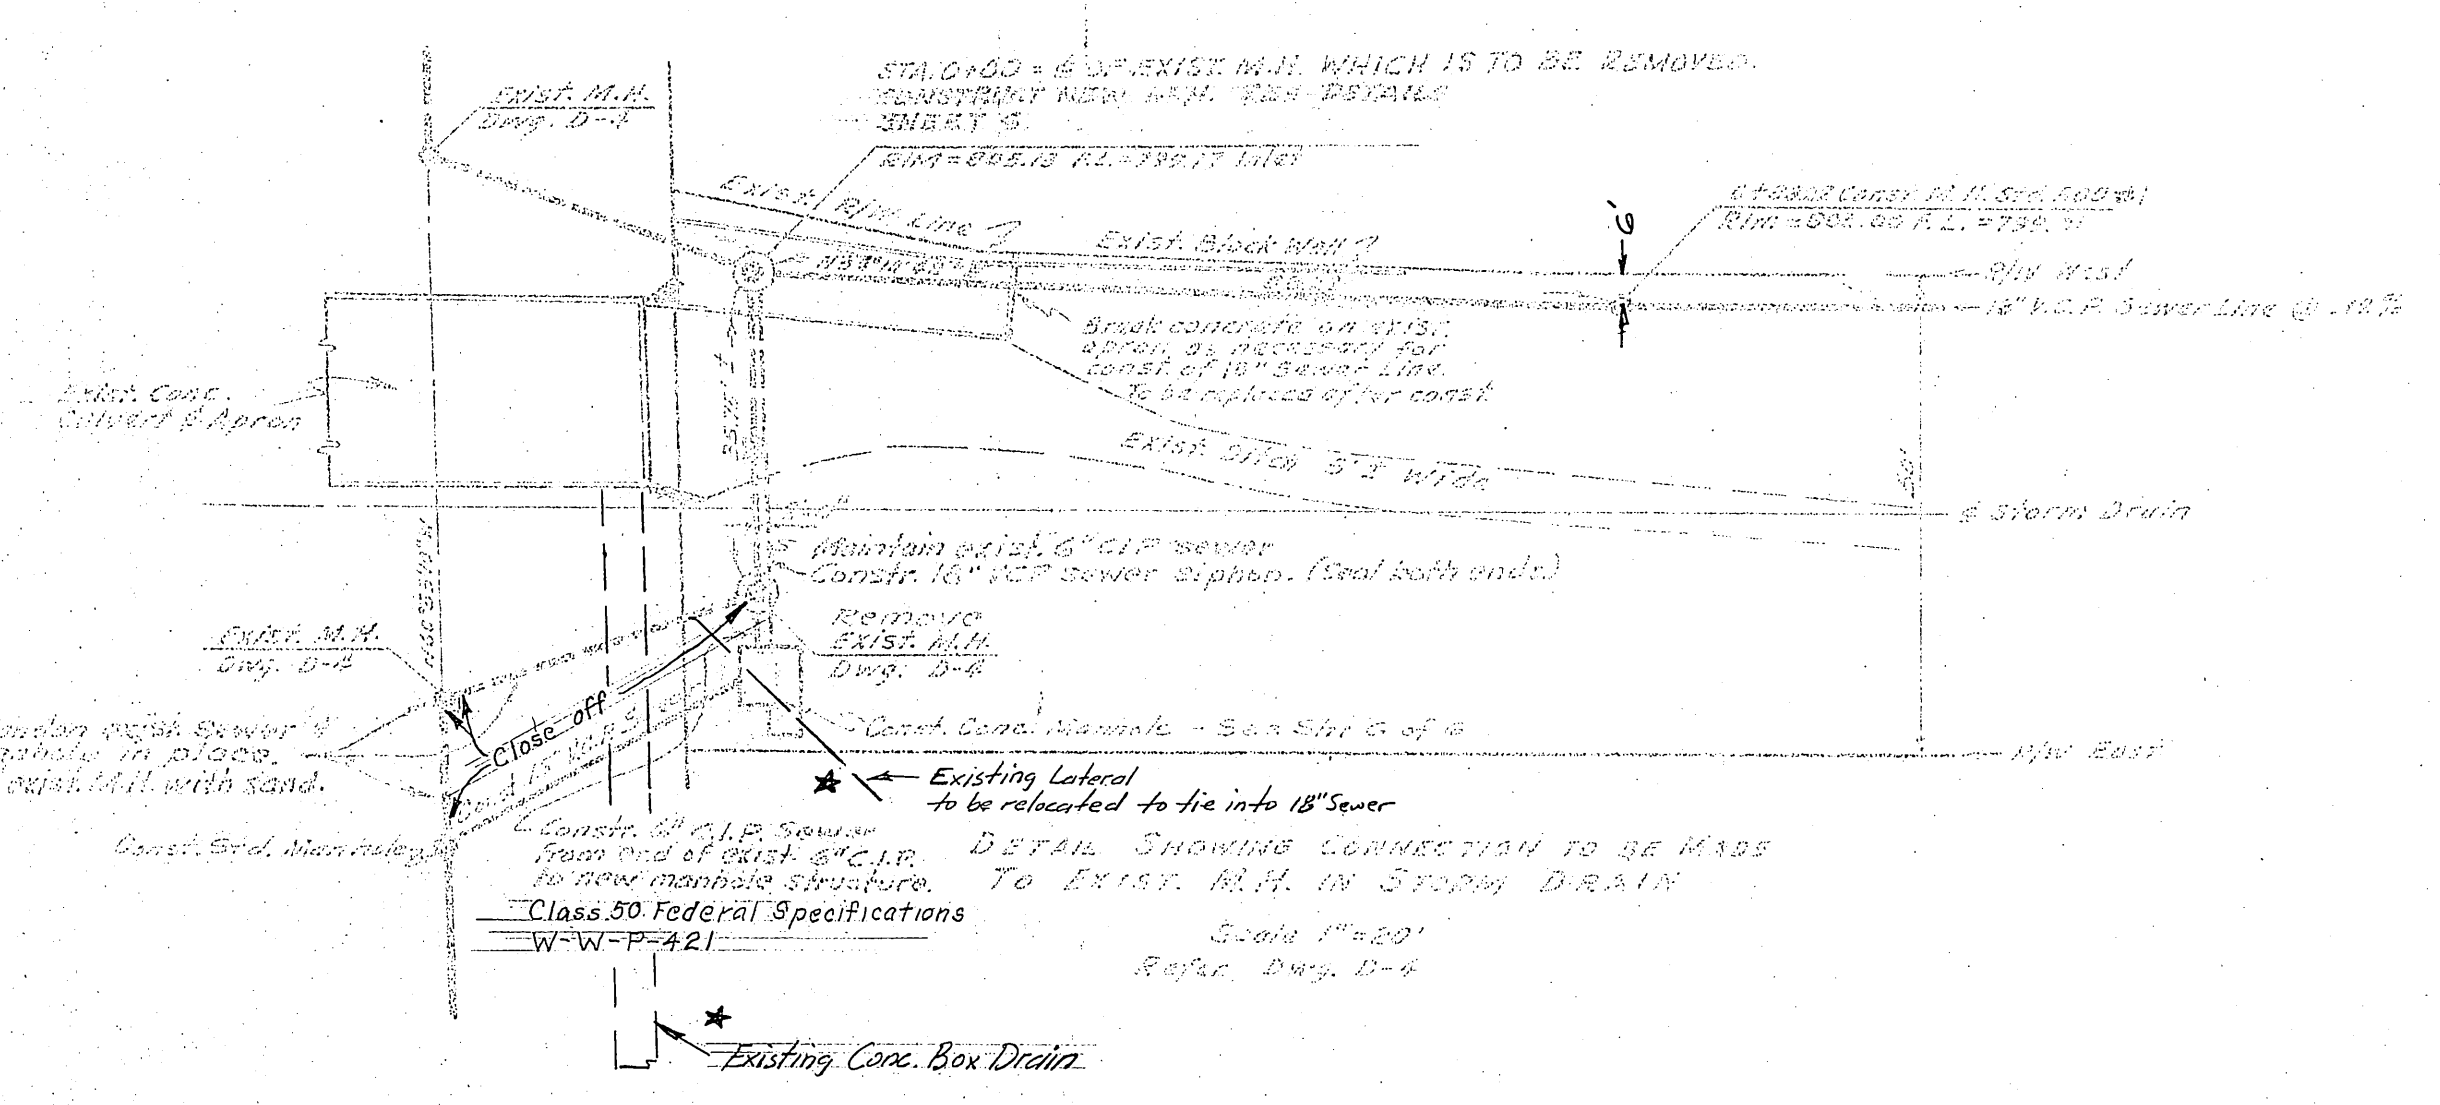 STA. 0+00 = ℄ OF EXIST. M.H. WHICH IS TO BE REMOVED.
CONSTRUCT NEW M.H. PER DETAILS
SHEET 6.
Exist. M.H.
Dwg. D-4
Exist. R/W Line
Exist. Block Wall
Const. M.H. Std.
6'
R/W West
18" V.C.P. Sewer Line @
Break concrete on exist.
apron as necessary for
const. of 18" Sewer Line.
To be replaced after const.
Exist. Conc.
Culvert & Apron
Exist. Ditch 5' ± Wide
℄ Storm Drain
Maintain exist. 6" C.I.P. sewer
Constr. 18" VCP sewer siphon. (Seal both ends.)
Remove
Exist. M.H.
Dwg. D-4
Exist. M.H.
Dwg. D-4
exist. Sewer &
in place.
exist. M.H. with sand.
Close off
Const. Conc. Manhole - See Sht 6 of 6
R/W East
Existing Lateral
to be relocated to tie into 18" Sewer
Const. Std. Manhole
Constr. 6" C.I.P. Sewer
from end of exist. 6" C.I.P.
to new manhole structure.
Class 50 Federal Specifications
W-W-P-421
DETAIL SHOWING CONNECTION TO BE MADE
TO EXIST. M.H. IN STORM DRAIN
Scale 1"=20'
Refer. Dwg. D-4
Existing Conc. Box Drain